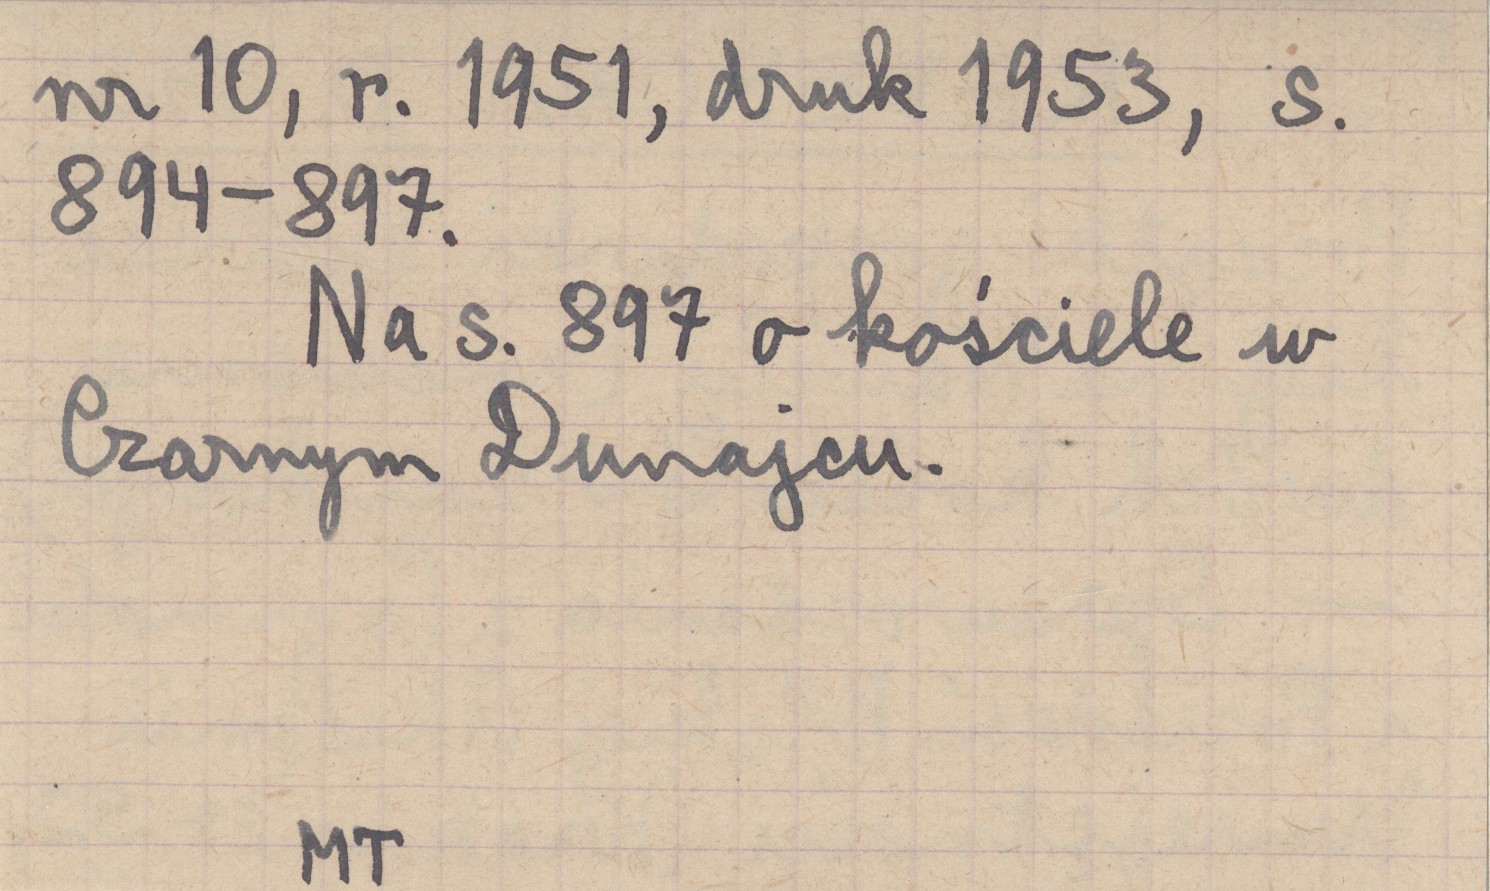 nr 10, r. 1951, druk 1953, s.
894-897.
Na s. 897 o kościele w
Czarnym Dunajcu.
MT